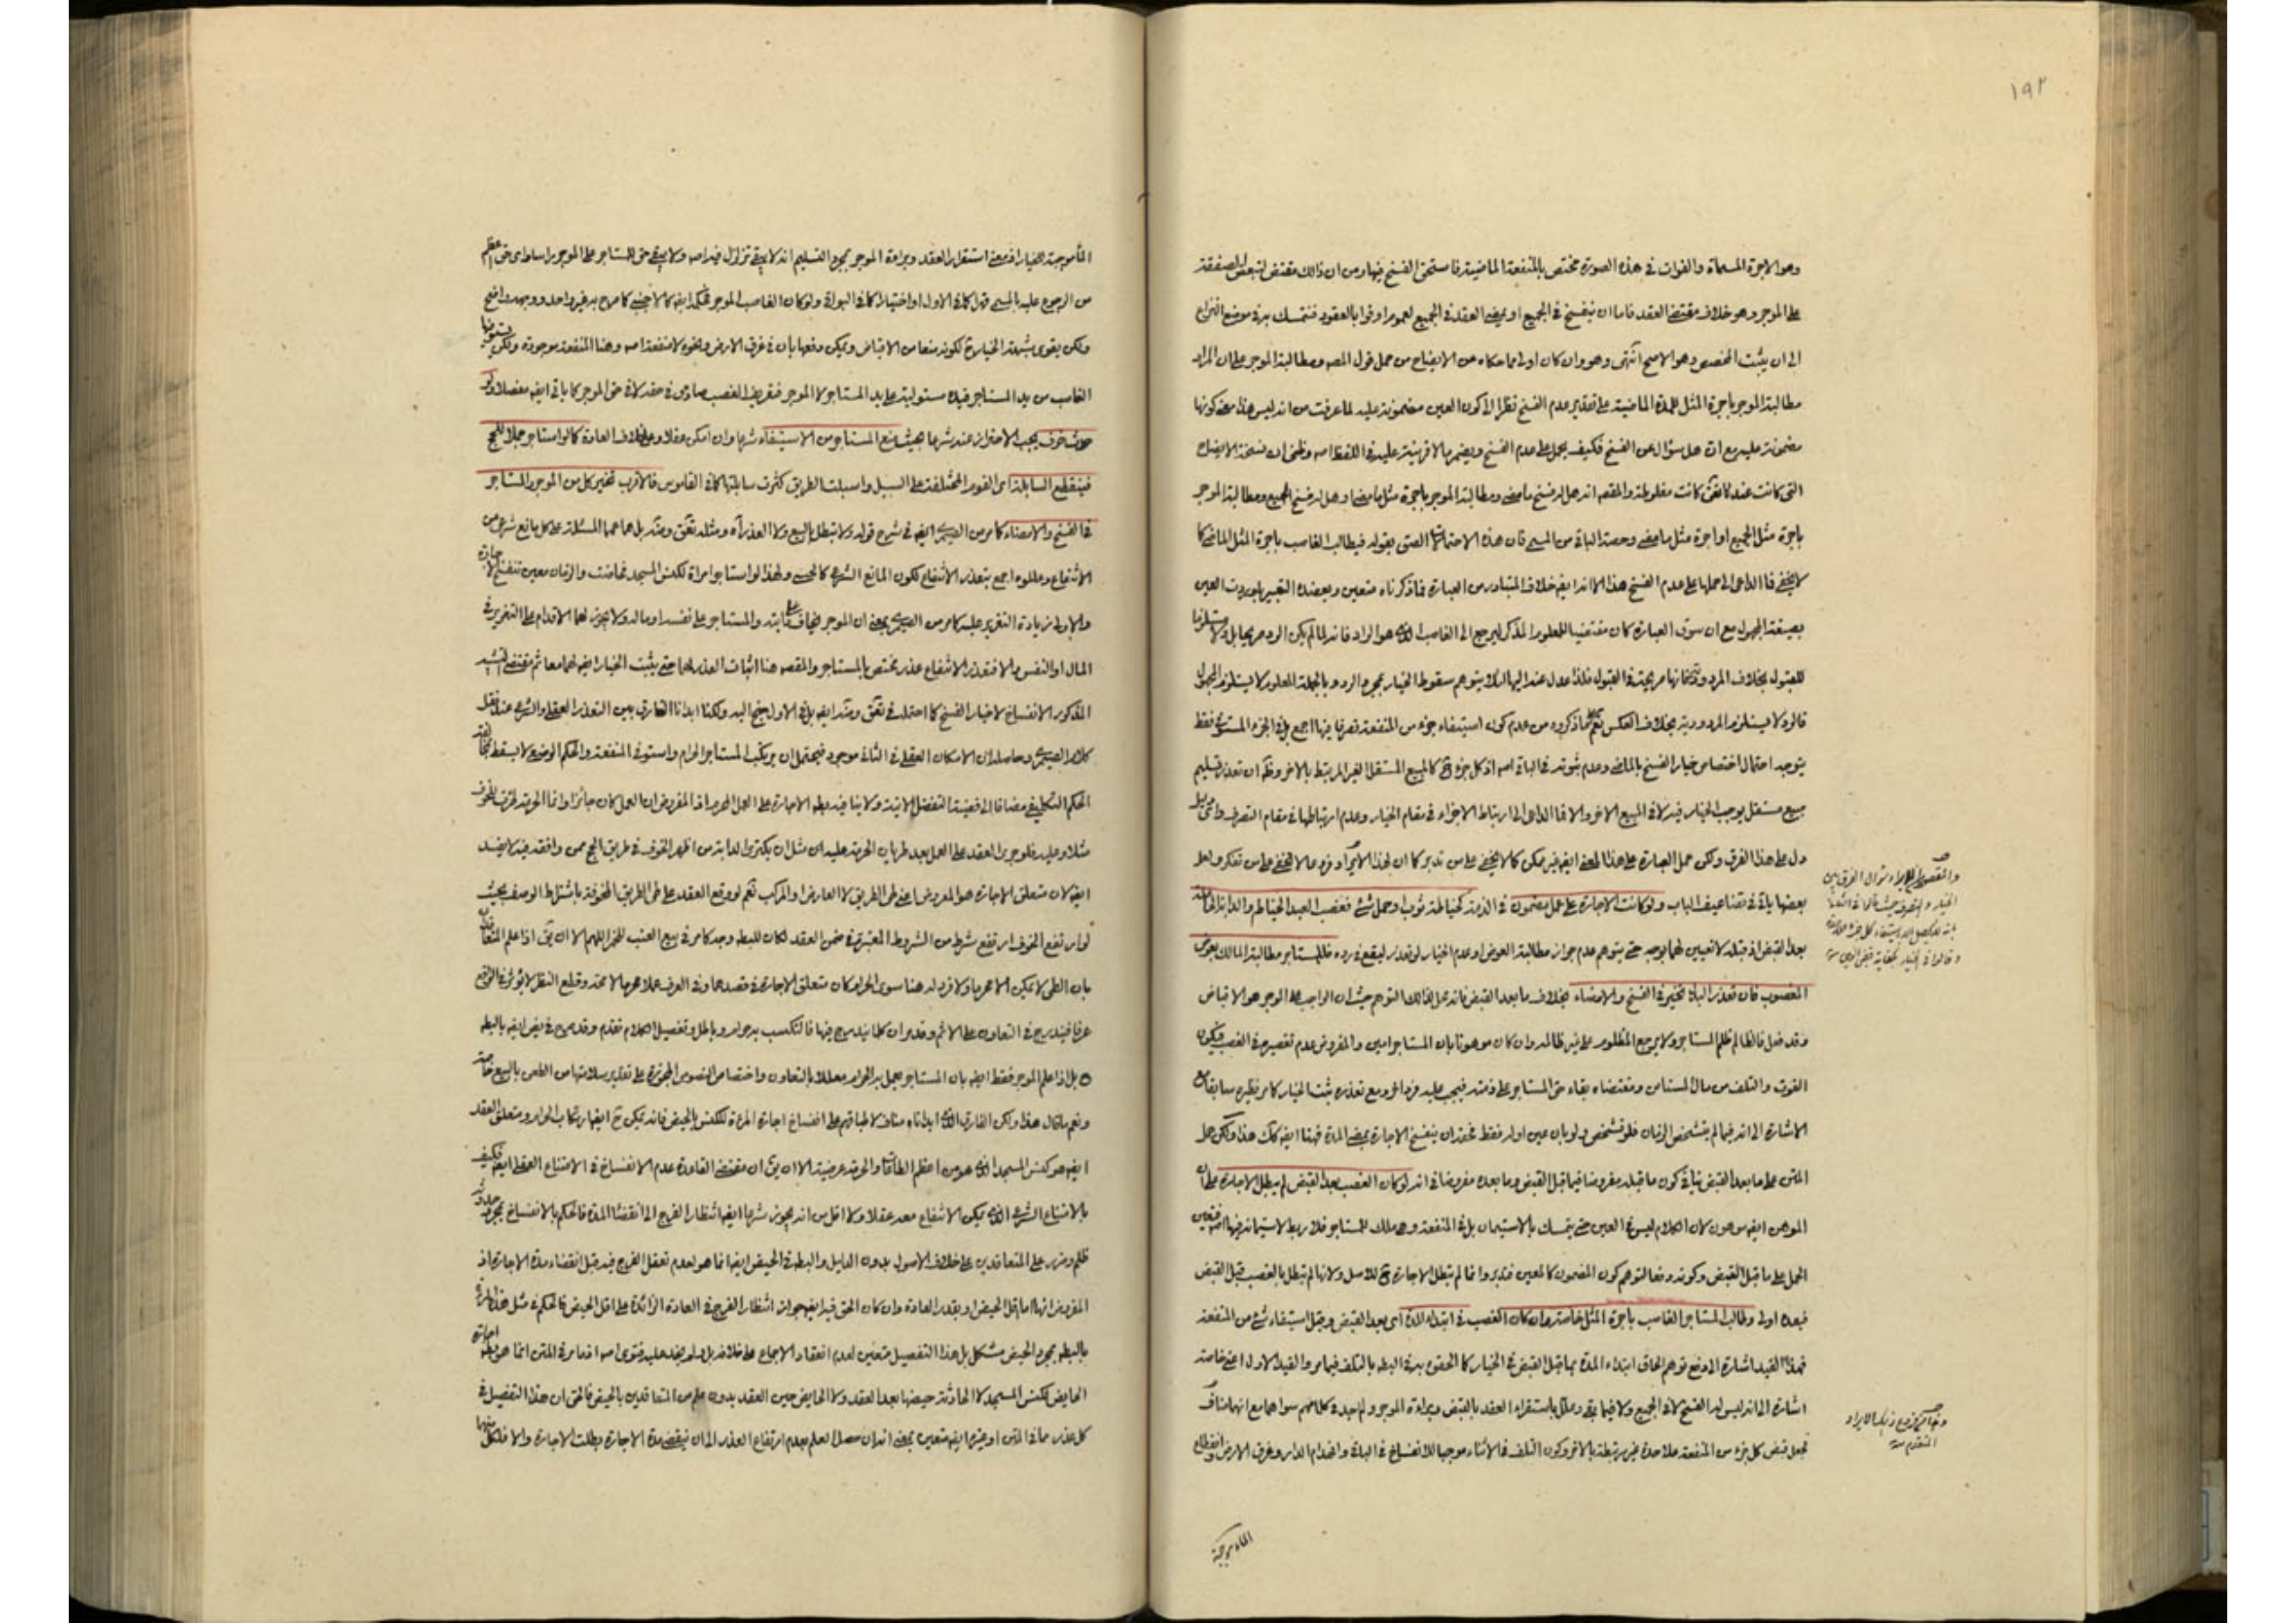 ١٩٢
وهو الاجرة المسماة والفوات في هذه الصورة مختص بالمنفعة الماضية فاستحق الفسخ فيها ومن ان ذلك مقتض لتبعض الصفقة
على الموجر وهو خلاف مقتضى العقد فاما ان ينفسخ في الجميع او يمضي العقد في الجميع لعموم اوفوا بالعقود فنتمسك به في موضع النزاع
الى ان يثبت المخصص وهو الاصح انتهى وهو وان كان اولى مما حكاه عن الايضاح من حمل قول المصه ومطالبة الموجر على ان المراد
مطالبة الموجر باجرة المثل للمدة الماضية على تقدير عدم الفسخ نظرا الى كون العين مضمونة عليه لما عرفت من انه ليس هذا معنى كونها
مضمونة عليه مع ان هل سؤال عن الفسخ فكيف يحمل على عدم الفسخ ويضمر ما لا قرينة عليه في اللفظ اصه وظني ان نسخة الايضاح
التي كانت عند كانت مغلوطة والمقصه انه هل له فسخ ما مضى ومطالبة الموجر باجرة مثل ما مضى او هل له فسخ الجميع ومطالبة الموجر
باجرة مثل الجميع او اجرة مثل ما مضى وحصة الباقي من المسمى فان هذه الاحتمالات بقوله فيطالب الغاصب باجرة المثل الماضي كما
لا يخفى فما الداعي الى حملها على عدم الفسخ هذا الا انه ايضه خلاف المتبادر من العبارة فما ذكرناه متعين ويعضده التعبير بلو ردت العين
بصيغة المجهول مع ان سوق العبارة كان مقتضيا للمعلوم المذكر ليرجع الى الغاصب الذي هو الراد فانه لما لم يكن الرد صريحا بل ولا مستلزما
للقبول بخلاف المردودية فانها صريحة في القبول فلذا عدل عنه اليها لئلا يتوهم سقوط الخيار بمجرد الرد وبالجملة المعلوم لا يستلزم المجهول
فالرد لا يستلزم المردودية بخلاف العكس نعم ما ذكروه من عدم كون استيفاء جزء من المنفعة تصرفا فيها اجمع بل في الجزء المستوفى فقط
يتوجه احتمال اختصاص خيار الفسخ بالماضي وعدم ثبوته في الباقي اصه اذ كل جزء ح كالمبيع المستقل الغير المرتبط بالاخر وظه ان تعذر تسليم
مبيع مستقل يوجب الخيار فيه لا في المبيع الاخر والا فما الداعي الى ارتباط الاجزاء في مقام الخيار وعدم ارتباطها في مقام التصرف واي دليل
دل على هذا الفرق ولكن حمل العبارة على هذا المعنى ايضه غير ممكن كما لا يخفى على من تدبر كما ان لهذا الايراد فروعا لا تخفى على من تفكر ولعل
بعضها ياتي في تضاعيف الباب ولو كانت الاجارة على عمل مضمون في الذمة كخياطة ثوب او حمل شئ فغصب العبد الخياط والدابة الحاملة
بعد القبض اذ قبله لا تعيين لهما بوجه حتى يتوهم عدم جواز مطالبة العوض او عدم الخيار لو تعذر ليقع في رده فللمستاجر مطالبة المالك بعوض
المغصوب فان تعذر البدل تخير في الفسخ والامضاء بخلاف ما بعد القبض فانه محل لذلك التوهم حيث ان الواجب على الموجر هو الاقباض
وقد فعل فالظالم ظلم المستاجر ولا يرجع المظلوم على غير ظالمه وان كان موهونا بان المستاجر امين والمفروض عدم تقصيره في الغصب فيكون
الفوت والتلف من مال المستاجر ومقتضاه بقاء حق المستاجر على ذمته فيجب عليه فرد اخر ومع تعذره يثبت الخيار كما مر نظيره سابقا مع
الاشارة الى انه فيما لم يتشخص الزمان فلو تشخص ولو بان عين اوله فقط فحقه ان ينفسخ الاجارة بمضي المدة فهنا ايضه كك هذا ولكن حمل
المتن على ما بعد القبض ينافي كون ما قبله مفروضا فيما قبل القبض وما بعده مفروضا في انه لو كان الغصب بعد القبض لم يبطل الاجارة على ان
الموهن ايضه موهون لان الكلام ليس في العين حتى يتمسك بالاستيمان بل في المنفعة وهي ملك للمستاجر فلا ربط لاستيمانه فيها اصه فتعين
الحمل على ما قبل القبض وكونه دفعا لتوهم كون المضمون كالمعين فتدبر وانما لم تبطل الاجارة ح للاصل ولانها لم تبطل بالغصب قبل القبض
فبعده اولى وطالب المستاجر الغاصب باجرة المثل خاصة وان كان الغصب في ابتداء المدة اي بعد القبض وقبل استيفاء شئ من المنفعة
فهذا القيد اشارة الى دفع توهم الحاق ابتداء المدة بما قبل القبض في الخيار كما الحقوه به في البطه بالتلف فيما مر والقيد الاول اعني خاصة
اشارة الى انه ليس له الفسخ لا في الجميع ولا فيما بقى وعلل باستقرار العقد بالقبض وبراءة الموجر ولم اجد في كلامهم سواهما مع انهما مناف
لجعل قبض كل جزء من المنفعة على حدة غير مرتبطة بالاخر وكون التلف في الاثناء موجبا للانفساخ في الباقي وانهدام الدار وغرق الارض وانقطاع
الماء موجبة
والمقصود من الايراد سؤال الفرق بين
الخيار والتصرف حيث قالوا في
المتقدم منه
الماء موجبة للخيار اذ معنى استقرار العقد وبراءة الموجر بمجرد التسليم انه لا يبقى تزلزل فيه اصه ولا يبقى حق للمستاجر على الموجر راسا واي حق اعظم
من الرجوع عليه بالمسمى قهرا كما في الاول او اختيارا كما في البواقي ولو كان الغاصب الموجر فكذا ايضه كالاجنبي كما صرح به غير واحد ووجهه واضح
ولكن يقوى شبهة الخيار ح لكونه منعا من الاقباض ويمكن دفعها بان في غرق الارض ونحوه لا منفعة اصه وهنا المنفعة موجودة ولكن فوتها
الغاصب من يد المستاجر فيده مستولية على يد المستاجر لا الموجر فتعريف الغصب صادق في حقه لا في حق الموجر كما ياتي ايضه مفصلا ولو
حدث خوف يجب الاحتراز عنه شرعا بحيث منع المستاجر من الاستيفاء شرعا وان امكن عقلا وعلى خلاف العادة كما لو استاجر جملا للحج
فينقطع السابلة اي القوم المختلفة على السبل واسبلت الطريق كثرت سابلتها كما في القاموس فالاقرب تخير كل من الموجر والمستاجر
في الفسخ والامضاء كما مر من ايضه في شرح قوله ولا تبطل بالبيع ولا العذر اه ومثله بل هما عمما المسئلة على كل مانع شرعي من
الانتفاع وعللوه اجمع بتعذر الانتفاع لكون المانع الشرعي كالحسي ولهذا لو استاجر امراة لكنس المسجد فحاضت والزمان معين تنفسخ الاجارة
والاولى زيادة التغرير عليه كما مر من بمعنى ان الموجر يخاف على دابته والمستاجر على نفسه او ماله ولا يجوز لهما الاقدام على التغرير في
المال او النفس والا فتعذر الانتفاع عذر مختص بالمستاجر والمقصه هنا اثبات العذر لهما حتى يثبت الخيار ايضه لهما معا ثم مقتضى التشبيه
المذكور الانفساخ لا خيار الفسخ كما احتمله في ايضه بل في الاول جنح اليه ولكنا ابدانا الفارق بين التعذر العقلي والشرعي عند نقل
كلام وحاصله ان الامكان العقلي في الثاني موجود فيحتمل ان يرتكب المستاجر الحرام واستوفى المنفعة والحكم الوضعي لا يسقط بمخالفة
الحكم التكليفي مضافا الى قضية التفصيل الاتية ولا ينافيه بطه الاجارة على العمل المحرم اذ المفروض ان العمل كان جائزا وانما الحرمة طرئت للخوف
مثلا وعليه فلو جرى العقد على العمل بعد طريان الحرمة عليه اي مثل ان يكتري الدابة من اظهر الخوف في طريق الحج ممن وافقه فيه لا يفسد
ايضه لان متعلق الاجارة هو المعروض اعني طي الطريق لا العارض او المركب نعم لو وقع العقد على طي الطريق المخوفة باشتراط الوصف بحيث
لو ارتفع الخوف ارتفع شرط من الشروط المعتبرة في ضمن العقد لكان للبطه وجه كما مر في بيع العنب للخمر اللهم الا ان يق اذا علم المتعاقدان
بان الطي لا يمكن الا محرما ولا فرد له هنا سوى الحرام كان متعلق الاجارة في قصدهما وفي العرف عملا محرما لا محة وقطع النظر لا يؤثر في الواقع
عرفا فيندرج في التعاون على الاثم وقد مر ان كلما يندرج فيها فالتكسب به حرام وباطل وتفصيل الكلام تقدم وقد صرح في بعض ايضه بالبطه
بل اذا علم الموجر فقط ايضه بان المستاجر يعمل به الحرام معللا بالتعاون واختصاص النصوص المجوزة على تقدير سلامتها من الطعن بالبيع خاصة
ونعم ما قال هذا ولكن الفارق الذي ابداناه مناف لاطباقهم على انفساخ اجارة المرءة للكنس بالحيض فانه يمكن ح ايضه ارتكاب الحرام ومتعلق العقد
ايضه هو كنس المسجد الذي هو من اعظم الطاعات والحرمة عرضية الا ان يق ان مقتضى القاعدة عدم الانفساخ في الامتناع العقلي ايضه فكيف
بالامتناع الشرعي الذي يمكن الانتفاع معه عقلا ولا اقل من انه يجوز شرعا ايضه انتظار الفرج الى انقضاء المدة فالحكم بالانفساخ بمجرد حدوثه
ظلم وضرر على المتعاقدين على خلاف الاصول بدون الدليل والبطه في الحيض ايضه انما هو لعدم تعقل الفرج فيه قبل انقضاء مدة الاجارة اذ
المفروض انها اما اقل الحيض او بقدر العادة وان كان الحق فيه ايضه جواز انتظار الفرج في العادة الزائدة على اقل الحيض فالحكم في مثل هذه المراة
بالبطه بمجرد الحيض مشكل بل هذا التفصيل متعين لعدم انعقاد الاجماع على خلافه بل ولم يوجد عليه فتوى اصه اذ ما مر في المتن انما هو بطه اجارة
الحايض لكنس المسجد لا الحادثة حيضها بعد العقد ولا الحايض حين العقد بدون علم من المتعاقدين بالحيض فالحق ان هذا التفصيل في
كل عذر مما في المتن او غيره ايضه متعين بمعنى انه ان حصل العلم بعدم ارتفاع العذر الى ان ينقضي مدة الاجارة بطلت الاجارة والا فلكل منهما